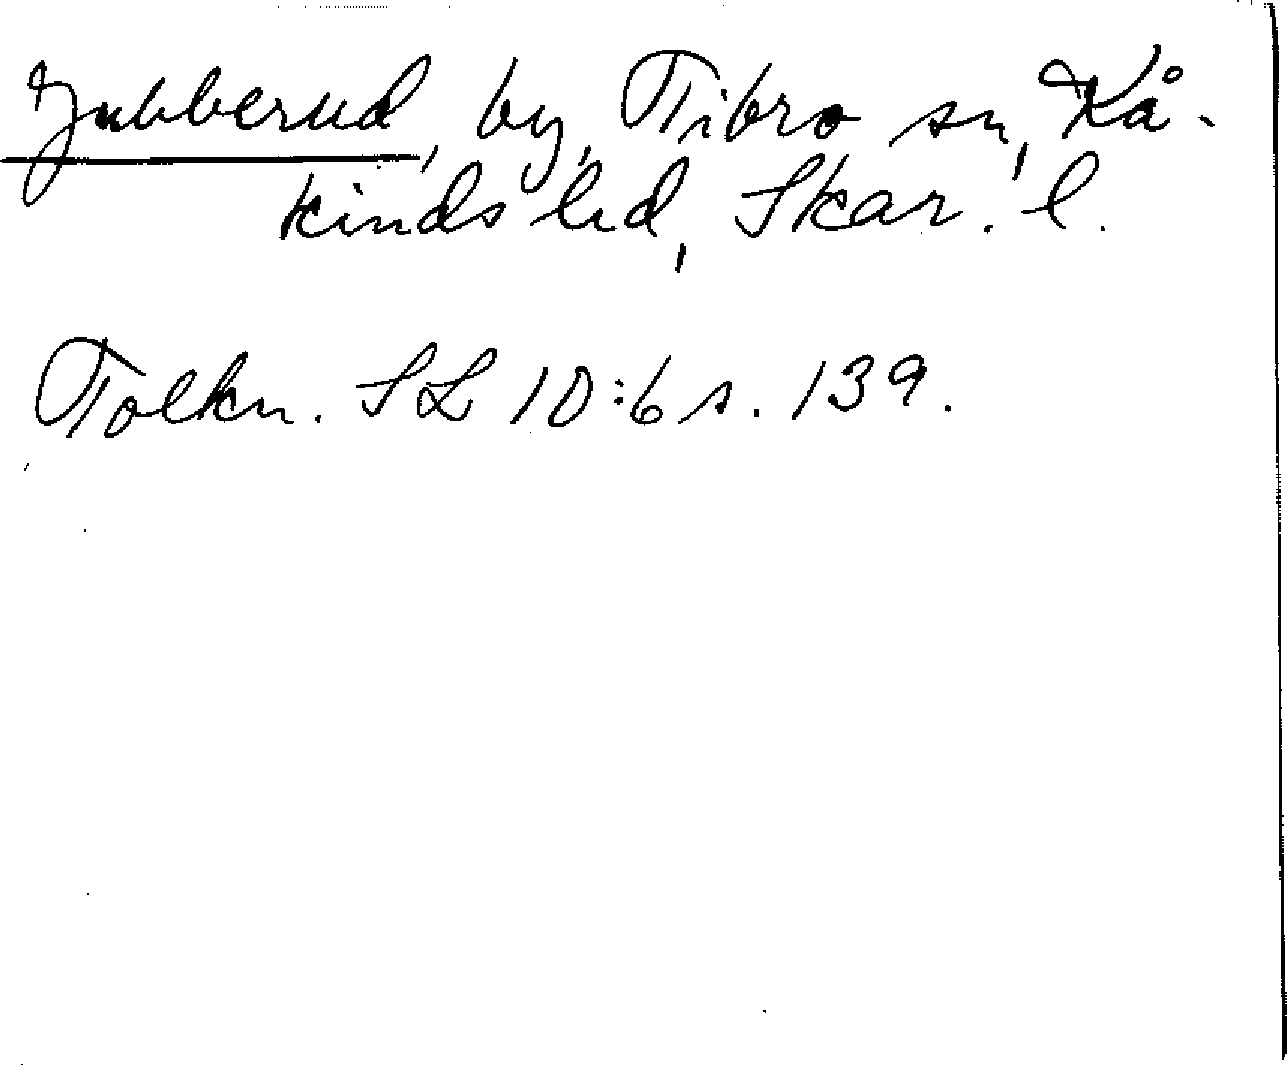 Jubberud, by, Tibro sn, Kå-
kinds hd, Skar. l.
Tolkn. SL 10:6 s. 139.